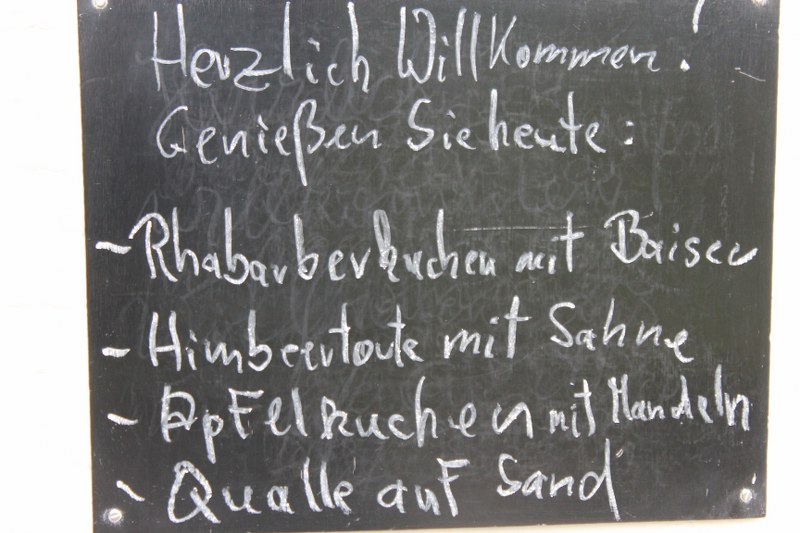 Herzlich Willkommen!
Genießen Sie heute:
- Rhabarberkuchen mit Baiser
- Himbeertorte mit Sahne
- Apfelkuchen mit Mandeln
- Qualle auf Sand